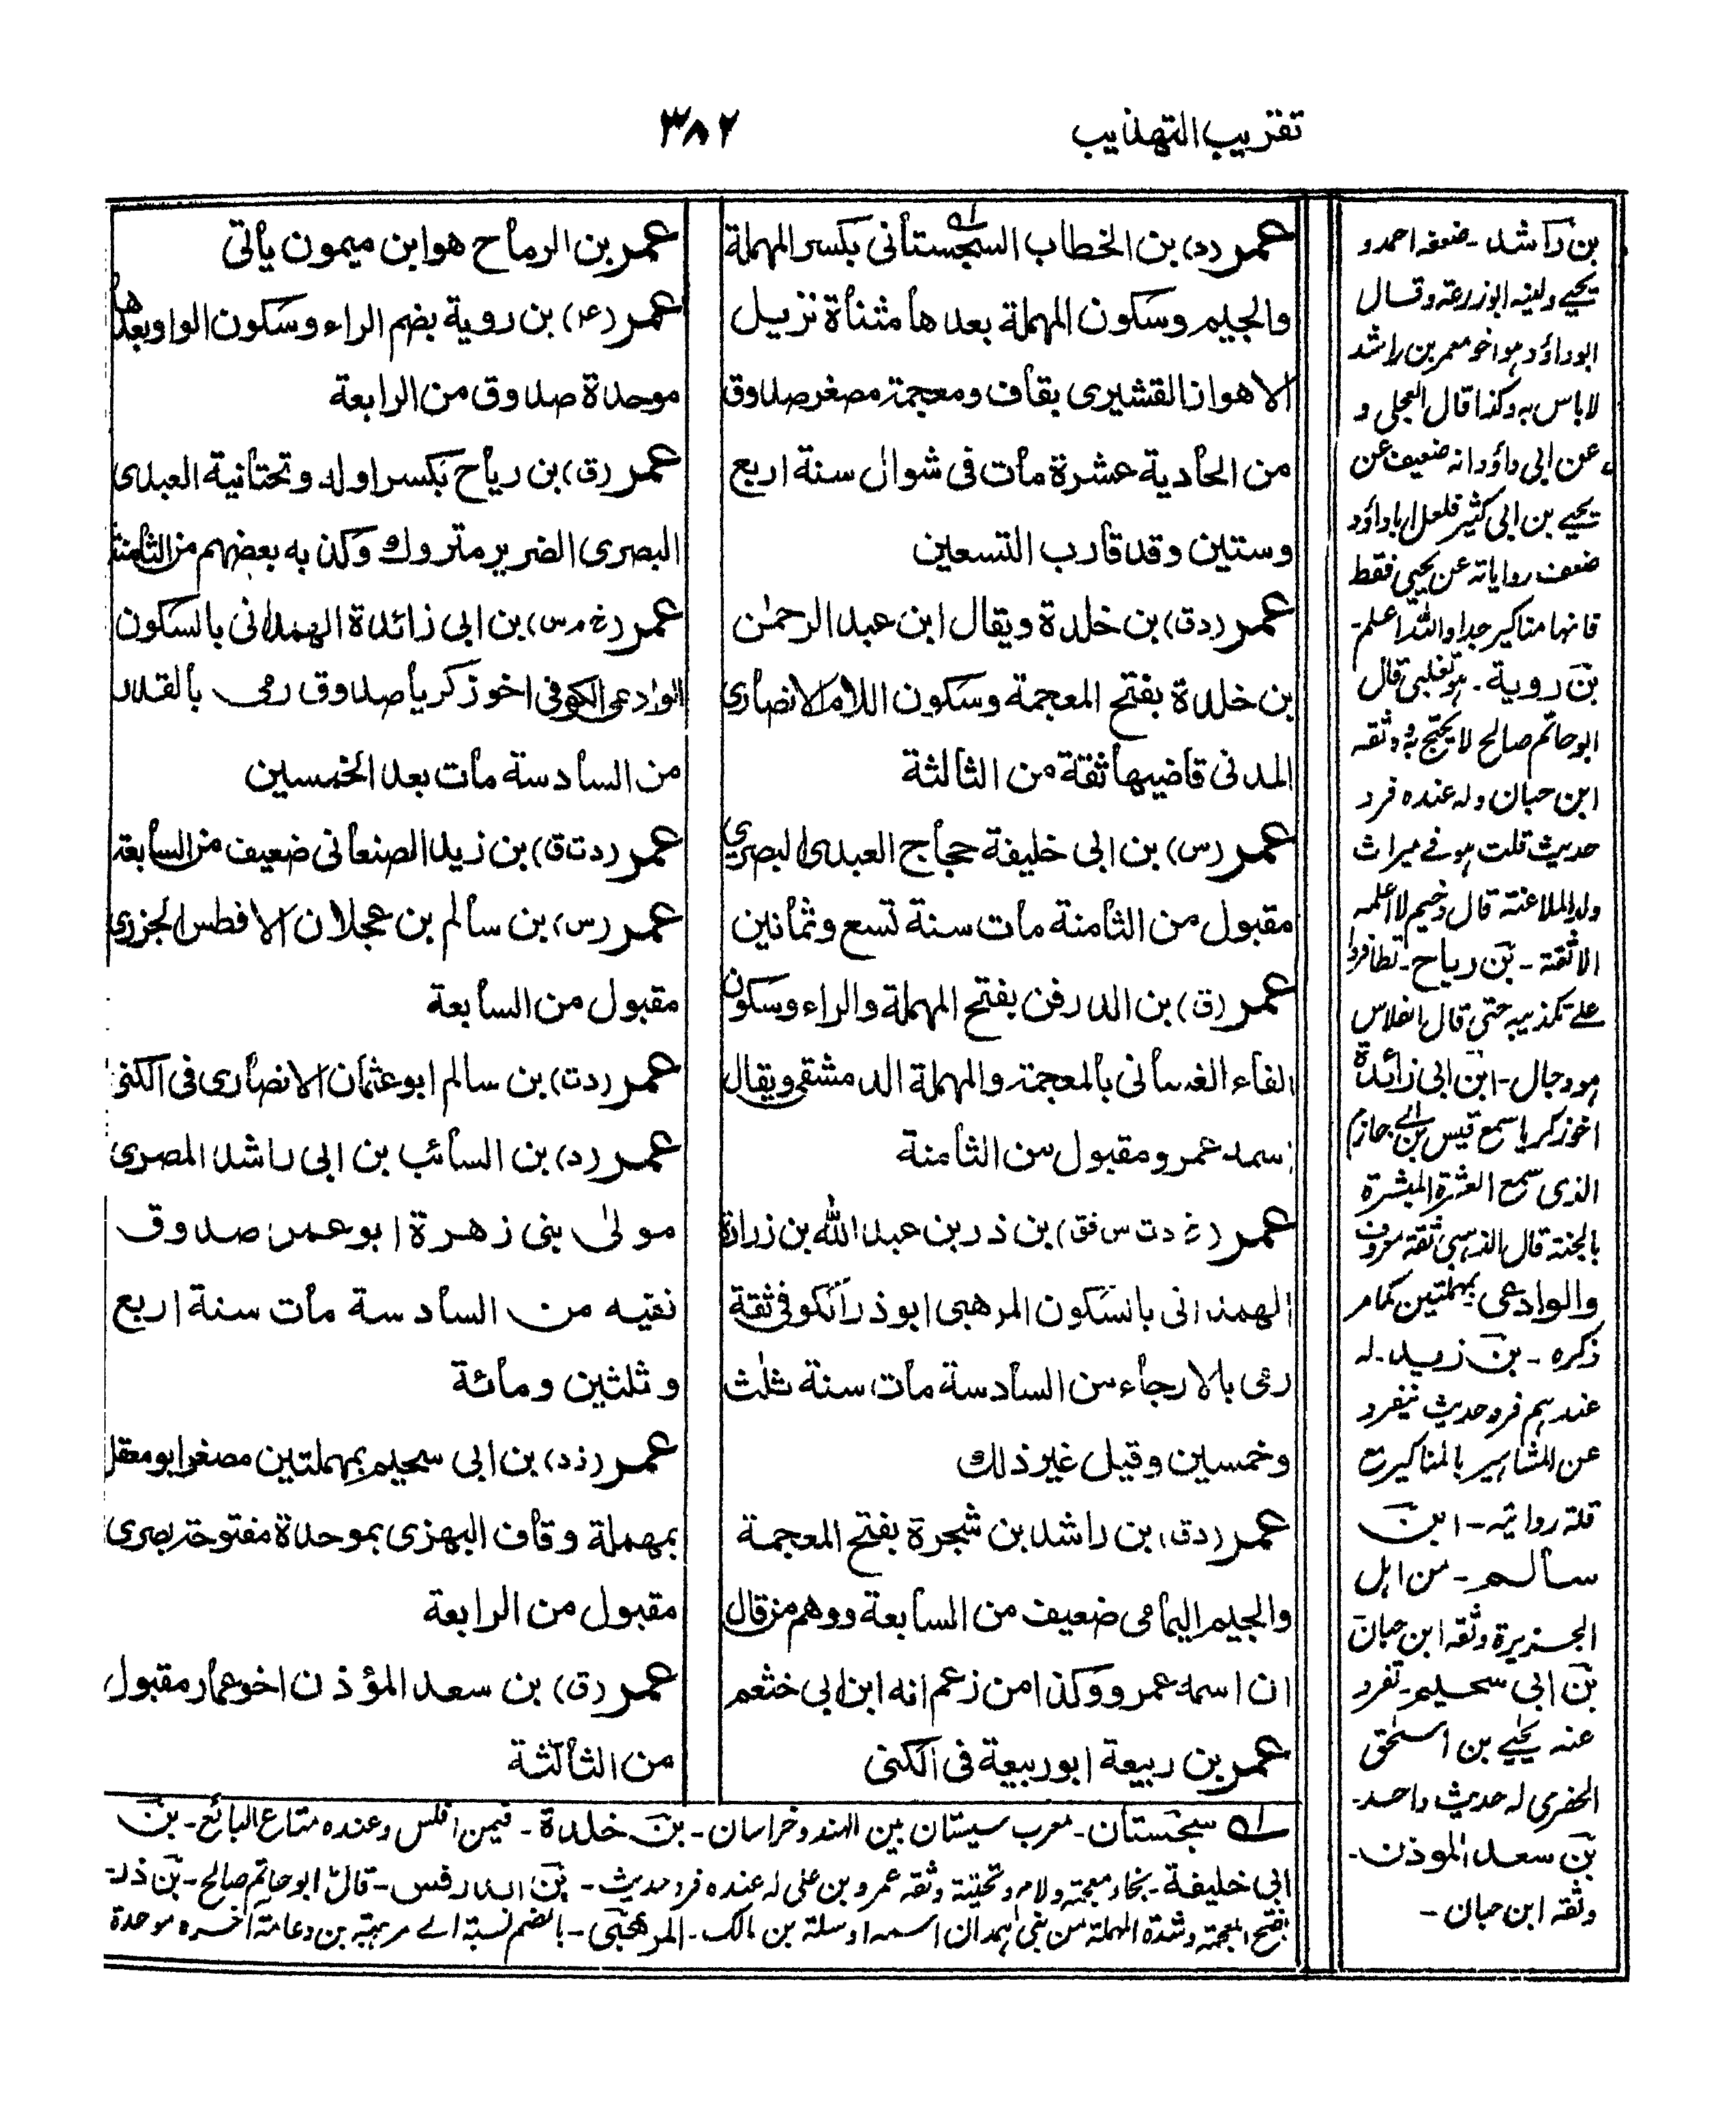 تقريب التهذيب
٣٨٢
عمر (د) بن الخطاب السجستاني بكسر المهملة
والجيم وسكون المهملة بعدها مثناة نزيل
الاهواز القشيري بقاف ومعجمة مصغر صدوق
من الحادية عشرة مات في شوال سنة اربع
وستين وقد قارب التسعين
عمر (دق) بن خلدة ويقال ابن عبد الرحمٰن
بن خلدة بفتح المعجمة وسكون اللام الانصاري
المدني قاضيها ثقة من الثالثة
عمر (س) بن ابي خليفة حجاج العبدي البصري
مقبول من الثامنة مات سنة تسع وثمانين
عمر (ق) بن الدرفن بفتح المهملة والراء وسكون
الفاء الغساني بالمعجمة والمهملة الدمشقي ويقال
اسمه عمرو مقبول من الثامنة
عمر (خ دت س فق) بن ذر بن عبد الله بن زرارة
الهمداني بالسكون المرهبي ابو ذر الكوفي ثقة
رمي بالارجاء من السادسة مات سنة ثلث
وخمسين وقيل غير ذلك
عمر (دق) بن راشد بن شجرة بفتح المعجمة
والجيم اليمامي ضعيف من السابعة ووهم من قال
ان اسمه عمرو وكذا من زعم انه ابن ابي خثعم
عمر بن ربيعة ابو ربيعة في الكنى
عمر بن الرماح هو ابن ميمون يأتي
عمر (عه) بن روبة بضم الراء وسكون الواو بعدها
موحدة صدوق من الرابعة
عمر (ق) بن رياح بكسر اوله وتحتانية العبدي
البصري الضرير متروك وكذبه بعضهم من الثامنة
عمر (خ م س) بن ابي زائدة الهمداني بالسكون
الوادعي الكوفي اخو زكريا صدوق رمي بالقدر
من السادسة مات بعد الخمسين
عمر (دت ق) بن زيد الصنعاني ضعيف من السابعة
عمر (س) بن سالم بن عجلان الافطس الجزري
مقبول من السابعة
عمر (دت) بن سالم ابو عثمان الانصاري في الكنى
عمر (د) بن السائب بن ابي راشد المصري
مولىٰ بني زهرة ابو عمر صدوق
فقيه من السادسة مات سنة اربع
وثلثين ومائة
عمر (زد) بن ابي سحيم بمهملتين مصغر ابو معقل
بمهملة وقاف البهزي بموحدة مفتوحة بصري
مقبول من الرابعة
عمر (ق) بن سعد المؤذن اخو عمار مقبول
من الثالثة
بن راشد - ضعفه احمد و
يحيے ولينه ابو زرعة وقال
ابو داؤد هو اخو معمر بن راشد
لا باس به وكذا قال العجلي و
عن ابي داؤد انه ضعيف عن
يحيے بن ابي كثير فلعل ابا داؤد
ضعف رواياته عن يحيى فقط
فانها مناكير جدا والله اعلم -
بن روبة - هو تغلبي قال
ابو حاتم صالح لا يحتج به وثقه
ابن حبان وله عنده فرد
حديث قلت هو في ميراث
ولد الملاعنة قال دحيم لا اعلمه
الا ثقة - بن رياح - تظافروا
علے تكذيبه حتى قال الفلاس
هو دجال - ابن ابي زائدة
اخو زكريا سمع قيس بن ابي حازم
الذي سمع العشرة المبشرة
بالجنة قال الذهبي ثقة معروف
والوادعي بمهملتين كما مر
ذكره - بن زيد - له
عندهم فرد حديث تفرد
عن المشاهير بالمناكير مع
قلة روايته - ابن
سالم - من اهل
الجزيرة وثقه ابن حبان
بن ابي سحيم - تفرد
عنه يحيٰے بن اسحٰق
الحضرمي له حديث واحد -
بن سعد الموذن -
وثقه ابن حبان -
له سجستان - معرب سيستان بين الهند وخراسان - بن خلدة - فيمن افلس وعنده متاع البائع - بن
ابي خليفة - بخاء معجمة ولام وتحتية وثقه عمرو بن علي له عنده فرد حديث - بن الدرفس - قال ابو حاتم صالح - بن ذر -
بفتح المعجمة وشدة المهملة من بني همدان اسمه اوسلة بن مالك - المرهبي - بالضم نسبة اے مرهبة بن دعامة آخره موحدة